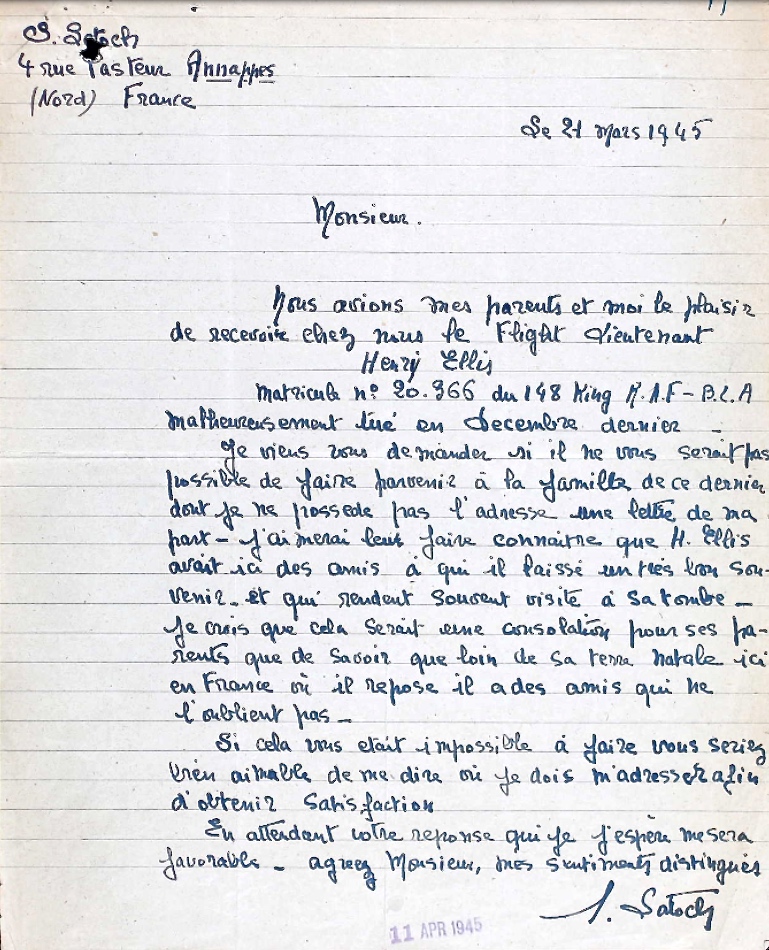 S. Satoch
4 rue Pasteur Annappes
(Nord) France
Le 21 Mars 1945
Monsieur.
Nous avions mes parents et moi le plaisir
de recevoir chez nous le Flight Lieutenant
Henry Ellis
matricule n° 20.366 du 148 Wing R.A.F - B.L.A
malheureusement tué en Decembre dernier -
Je viens vous demander si il ne vous serait pas
possible de faire parvenir à la famille de ce dernier
dont je ne possede pas l'adresse une lettre de ma
part - J'aimerai leur faire connaitre que H. Ellis
avait ici des amis à qui il laissé un très bon sou-
venir - et qui rendent souvent visite à sa tombe -
Je crois que cela serait une consolation pour ses pa-
rents que de savoir que loin de sa terre natale ici
en France où il repose il a des amis qui ne
l'oublient pas -
Si cela vous etait impossible à faire vous seriez
bien aimable de me dire où je dois m'adresser afin
d'obtenir satisfaction
En attendant votre reponse qui je j'espère me sera
favorable - agreez Monsieur, mes sentiments distingués
S. Satoch
11 APR 1945